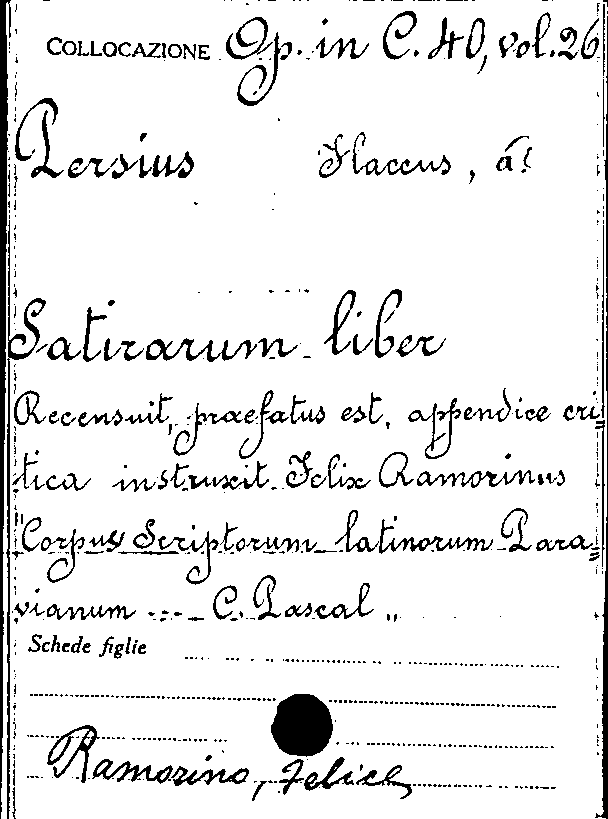 COLLOCAZIONE Op. in C. 40, vol. 26
Persius Flaccus, A.
Satirarum liber
Recensuit, praefatus est, appendice cri=
tica instruxit Felix Ramorinus
"Corpus Scriptorum latinorum Para=
vianum --- C. Pascal „
Schede figlie
Ramorino, Felice